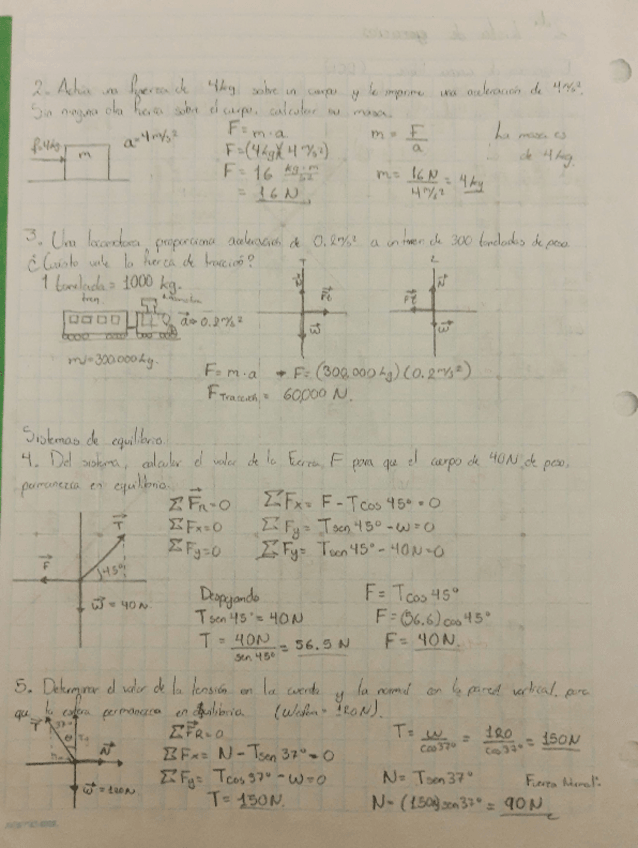 2. Actúa una fuerza de 4kg sobre un cuerpo y le imprime una aceleración de 4m/s².
Sin ninguna otra fuerza sobre el cuerpo, calcular su masa.
F=4kg m a=4m/s²
F= m·a
F=(4kg)(4m/s²)
F= 16 kg·m/s²
= 16 N
m = F/a
m= 16N/4m/s² = 4kg
La masa es
de 4kg.
3. Una locomotora proporciona aceleración de 0.2m/s² a un tren de 300 toneladas de peso
¿Cuánto vale la fuerza de tracción?
1 tonelada = 1000 kg.
tren
a=0.2m/s²
m=300,000kg.
N Ft W
N Ft W
F=m·a → F=(300,000kg)(0.2m/s²)
F Tracción = 60,000 N.
Sistemas de equilibrio
4. Del sistema, calcular el valor de la fuerza F para que el cuerpo de 40N de peso,
permanezca en equilibrio.
ΣFR=0
ΣFx=0
ΣFy=0
ΣFx= F - Tcos 45° = 0
ΣFy= Tsen45° - w=0
ΣFy= Tsen45° - 40N=0
F T 45° w = 40N
Despejando
Tsen 45°=40N
T = 40N/sen 45° = 56.5 N
F= Tcos45°
F=(56.6)cos45°
F= 40N.
5. Determinar el valor de la tensión en la cuerda y la normal con la pared vertical, para
que la esfera permanezca en equilibrio. (Wesfera = 120N).
T N w=120N
ΣFR=0
ΣFx= N - Tsen 37° = 0
ΣFy= Tcos37° - w=0
T= 150N.
T= w/cos37° = 120/cos37° = 150N
N= Tsen37°
N= (150)sen37° = 90N
Fuerza Normal